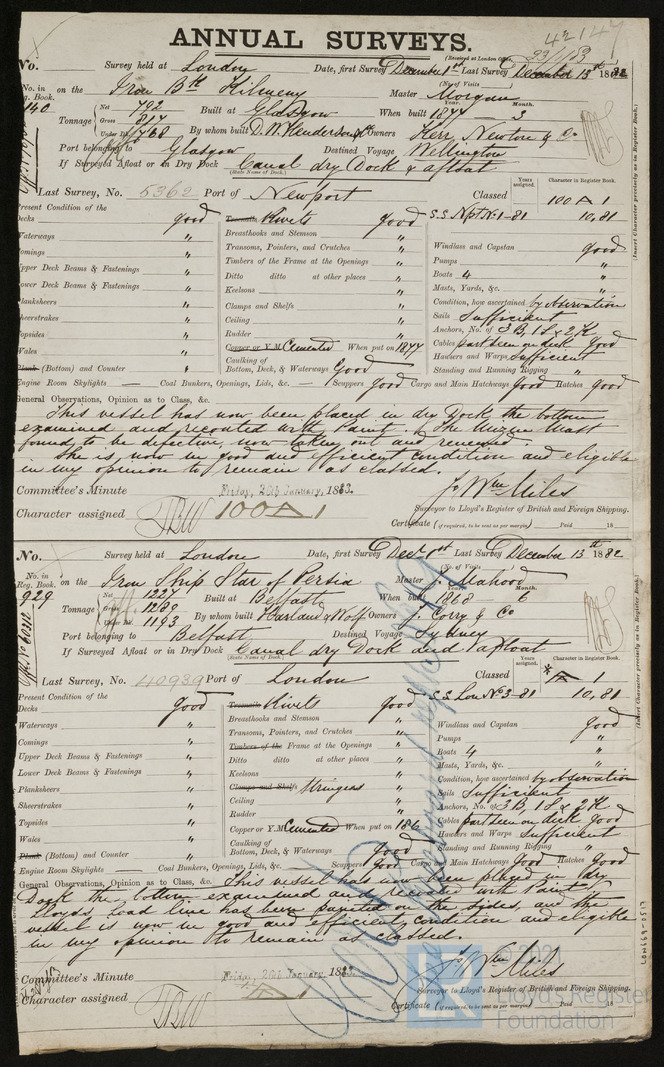 42147
ANNUAL SURVEYS.
(Received at London Office 23/1/83
No. Survey held at London Date, first Survey December 1st Last Survey December 13th 1882
(No. of Visits )
No. in Reg. Book. on the Iron Bk Kilmeny Master Morgan
Tonnage Net 792 Gross 817 Under Dk 768 Built at Glasgow When built Year. 1874 Month. 3
By whom built D. & W. Henderson & Co Owners Kerr, Newton & Co
Port belonging to Glasgow Destined Voyage Wellington
If Surveyed Afloat or in Dry Dock Canal dry Dock & afloat
(State Name of Dock.)
Last Survey, No. 5362 Port of Newport Classed Years assigned. Character in Register Book. 100 A 1
S.S. Npt No 1-81 10,81
Present Condition of the
Decks good Treenails Rivets good
Waterways " Breasthooks and Stemson "
Comings " Transoms, Pointers, and Crutches " Windlass and Capstan good
Upper Deck Beams & Fastenings " Timbers of the Frame at the Openings " Pumps "
Lower Deck Beams & Fastenings " Ditto ditto at other places " Boats 4 "
Planksheers " Keelsons " Masts, Yards, &c. "
Sheerstrakes " Clamps and Shelfs " Condition, how ascertained by observation
Topsides " Ceiling " Sails Sufficient
Wales " Rudder " Anchors, No. of 3 B, 1 S & 2 K
Plank (Bottom) and Counter " Copper or Y.M. Cemented When put on 1877 Cables part seen on deck Good
Caulking of Bottom, Deck, & Waterways Good Hawsers and Warps Sufficient
Standing and Running Rigging "
Engine Room Skylights — Coal Bunkers, Openings, Lids, &c. — Scuppers Good Cargo and Main Hatchways Good Hatches Good
General Observations, Opinion as to Class, &c.
This vessel has now been placed in dry Dock the bottom
examined and recoated with Paint. The Mizen Mast
found to be defective, now taken out and renewed.
She is now in good and efficient condition and eligible
in my opinion to remain as classed.
Committee's Minute Friday, 26th January, 1883.
Character assigned 100 A 1
Js Wm Miles
Surveyor to Lloyd's Register of British and Foreign Shipping.
Certificate (if required, to be sent as per margin) Paid 18
(Insert Character precisely as in Register Book.)
No. Survey held at London Date, first Survey Decr 1st Last Survey December 13th 1882
(No. of Visits )
No. in Reg. Book. 929 on the Iron Ship Star of Persia Master J. Mahood
Tonnage Net 1227 Gross 1289 Under Dk 1193 Built at Belfast When built Year. 1868 Month. 6
By whom built Harland & Wolf Owners J. Corry & Co
Port belonging to Belfast Destined Voyage Sydney
If Surveyed Afloat or in Dry Dock Canal dry Dock and afloat
(State Name of Dock.)
Last Survey, No. 40939 Port of London Classed Years assigned. Character in Register Book. A 1
S.S. Lon No 3-81 10,81
Present Condition of the
Decks good Treenails Rivets good
Waterways " Breasthooks and Stemson "
Comings " Transoms, Pointers, and Crutches " Windlass and Capstan good
Upper Deck Beams & Fastenings " Timbers of the Frame at the Openings " Pumps "
Lower Deck Beams & Fastenings " Ditto ditto at other places " Boats 4 "
Planksheers " Keelsons " Masts, Yards, &c. "
Sheerstrakes " Clamps and Shelfs Stringers " Condition, how ascertained by observation
Topsides " Ceiling " Sails Sufficient
Wales " Rudder " Anchors, No. of 3 B, 1 S & 2 K
Plank (Bottom) and Counter " Copper or Y.M. Cemented When put on 186 Cables part seen on deck Good
Caulking of Bottom, Deck, & Waterways Good Hawsers and Warps Sufficient
Standing and Running Rigging "
Engine Room Skylights — Coal Bunkers, Openings, Lids, &c. — Scuppers Good Cargo Main Hatchways Good Hatches Good
General Observations, Opinion as to Class, &c. This vessel has now been placed in dry
Dock the bottom examined and recoated with Paint
Lloyds Load line has been painted on the sides, and the
vessel is now in good and efficient condition and eligible
in my opinion to remain as classed.
Committee's Minute Friday, 26th January, 1883.
Character assigned A 1
Js Wm Miles
Surveyor to Lloyd's Register of British and Foreign Shipping.
Certificate (if required, to be sent as per margin) Paid 18
(Insert Character precisely as in Register Book.)
Lloyd's Register
Foundation